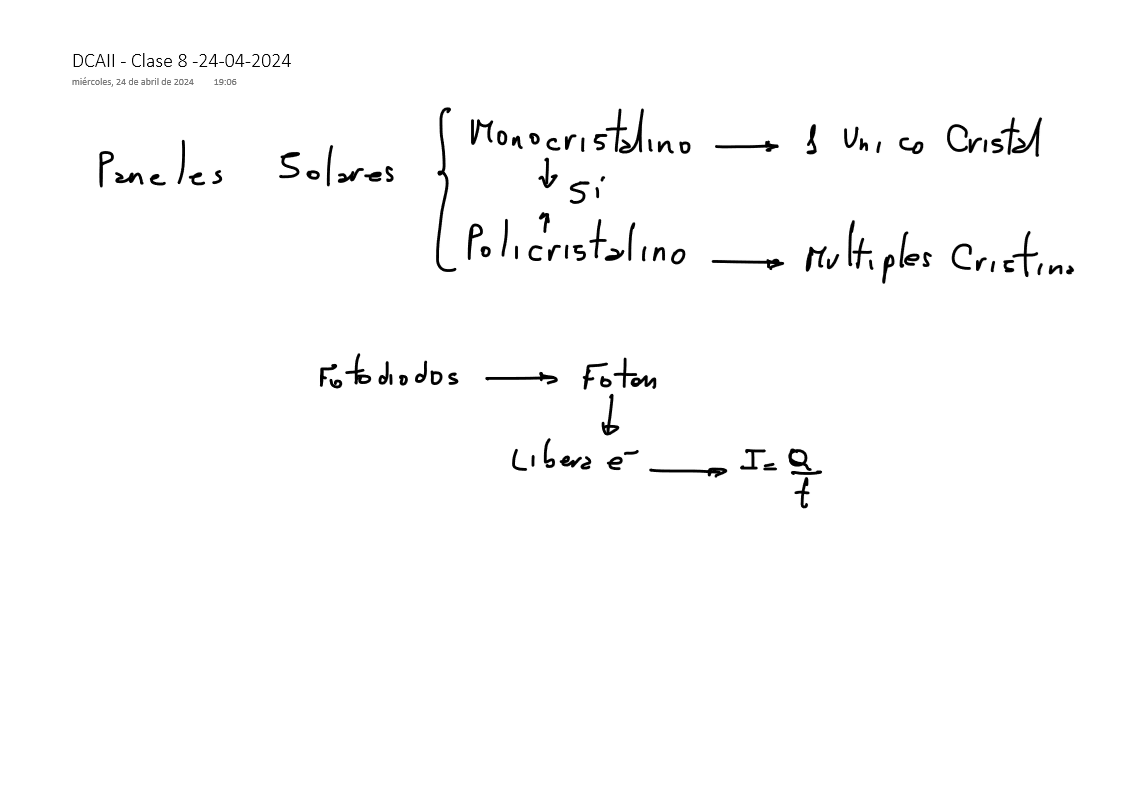 DCAII - Clase 8 -24-04-2024
miércoles, 24 de abril de 2024 19:06
Monocristalino → 1 Unico Cristal
Paneles Solares
↓ Si
↑
Policristalino → Multiples Cristina
Fotodiodos → Foton
↓
Libera e⁻ → I = Q/t